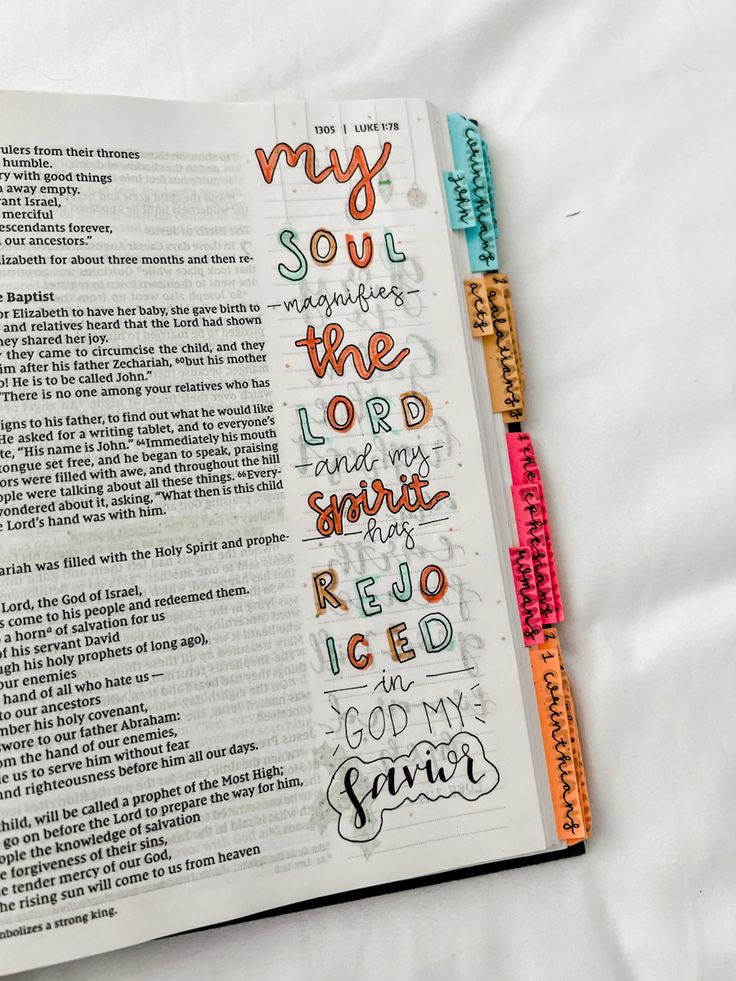 1305 | LUKE 1:78
ulers from their thrones
humble.
ry with good things
away empty.
ant Israel,
merciful
escendants forever,
our ancestors.”
lizabeth for about three months and then re-
e Baptist
or Elizabeth to have her baby, she gave birth to
and relatives heard that the Lord had shown
hey shared her joy.
they came to circumcise the child, and they
im after his father Zechariah, 60but his mother
o! He is to be called John.”
“There is no one among your relatives who has
igns to his father, to find out what he would like
He asked for a writing tablet, and to everyone’s
te, “His name is John.” 64Immediately his mouth
ongue set free, and he began to speak, praising
ors were filled with awe, and throughout the hill
ople were talking about all these things. 66Every-
wondered about it, asking, “What then is this child
e Lord’s hand was with him.
ariah was filled with the Holy Spirit and prophe-
Lord, the God of Israel,
s come to his people and redeemed them.
a horn of salvation for us
of his servant David
ugh his holy prophets of long ago),
our enemies
hand of all who hate us—
to our ancestors
mber his holy covenant,
swore to our father Abraham:
om the hand of our enemies,
le us to serve him without fear
and righteousness before him all our days.
child, will be called a prophet of the Most High;
go on before the Lord to prepare the way for him,
ople the knowledge of salvation
e forgiveness of their sins,
e tender mercy of our God,
he rising sun will come to us from heaven
mbolizes a strong king.
my
SOUL
magnifies
the
LORD
and my
Spirit
has
REJO
ICED
in
GOD MY
Savior
john
acts
galatians
ephesians
romans
1 corinthians